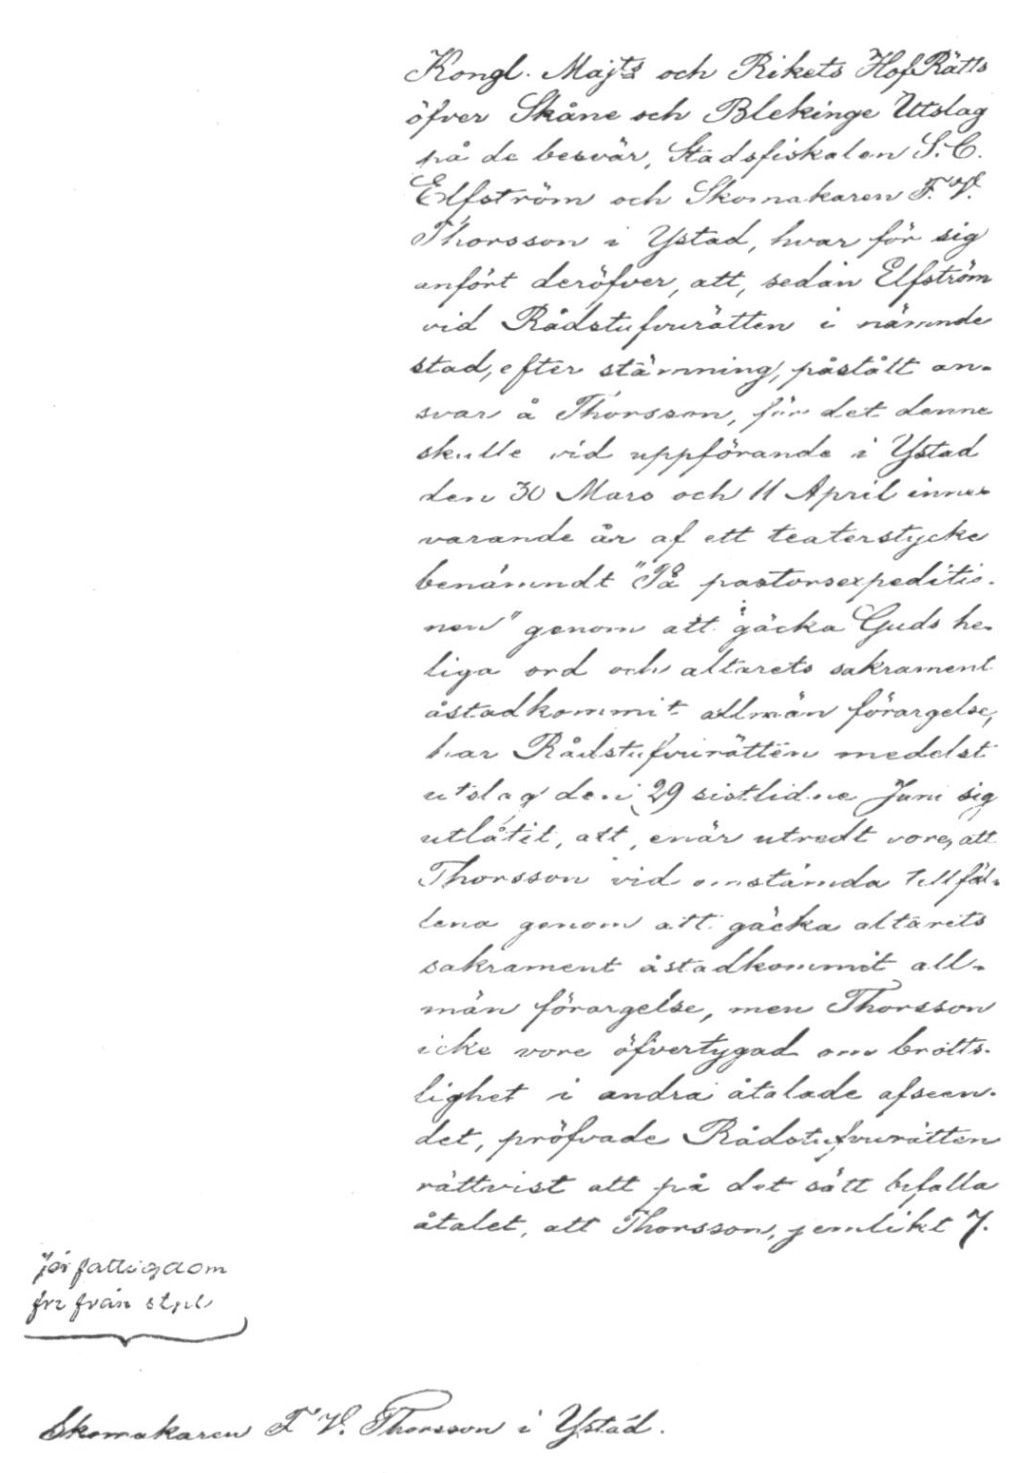 Kongl. Majts och Rikets HofRätts
öfver Skåne och Blekinge Utslag
på de besvär, Stadsfiskalen S. C.
Elfström och Skomakaren F. V.
Thorsson i Ystad, hvar för sig
anfört deröfver, att, sedan Elfström
vid Rådstufvurätten i nämnde
stad, efter stämning, påstått an-
svar å Thorsson, för det denne
skulle vid uppförande i Ystad
den 30 Mars och 11 April inne-
varande år af ett teaterstycke
benämndt "På pastorsexpeditio-
nen" genom att gäcka Guds he-
liga ord och altarets sakrament
åstadkommit allmän förargelse,
har Rådstufvurätten medelst
utslag den 29 sistlidne Juni sig
utlåtit, att, enär utredt vore, att
Thorsson vid omstämda tillfäl-
lena genom att gäcka altarets
sakrament åstadkommit all-
män förargelse, men Thorsson
icke vore öfvertygad om brotts-
lighet i andra åtalade afseen-
det, pröfvade Rådstufvurätten
rättvist att på det sätt bifalla
åtalet, att Thorsson, jemlikt 7.
För fattigdom
fri från stpl
Skomakaren F. V. Thorsson i Ystad.